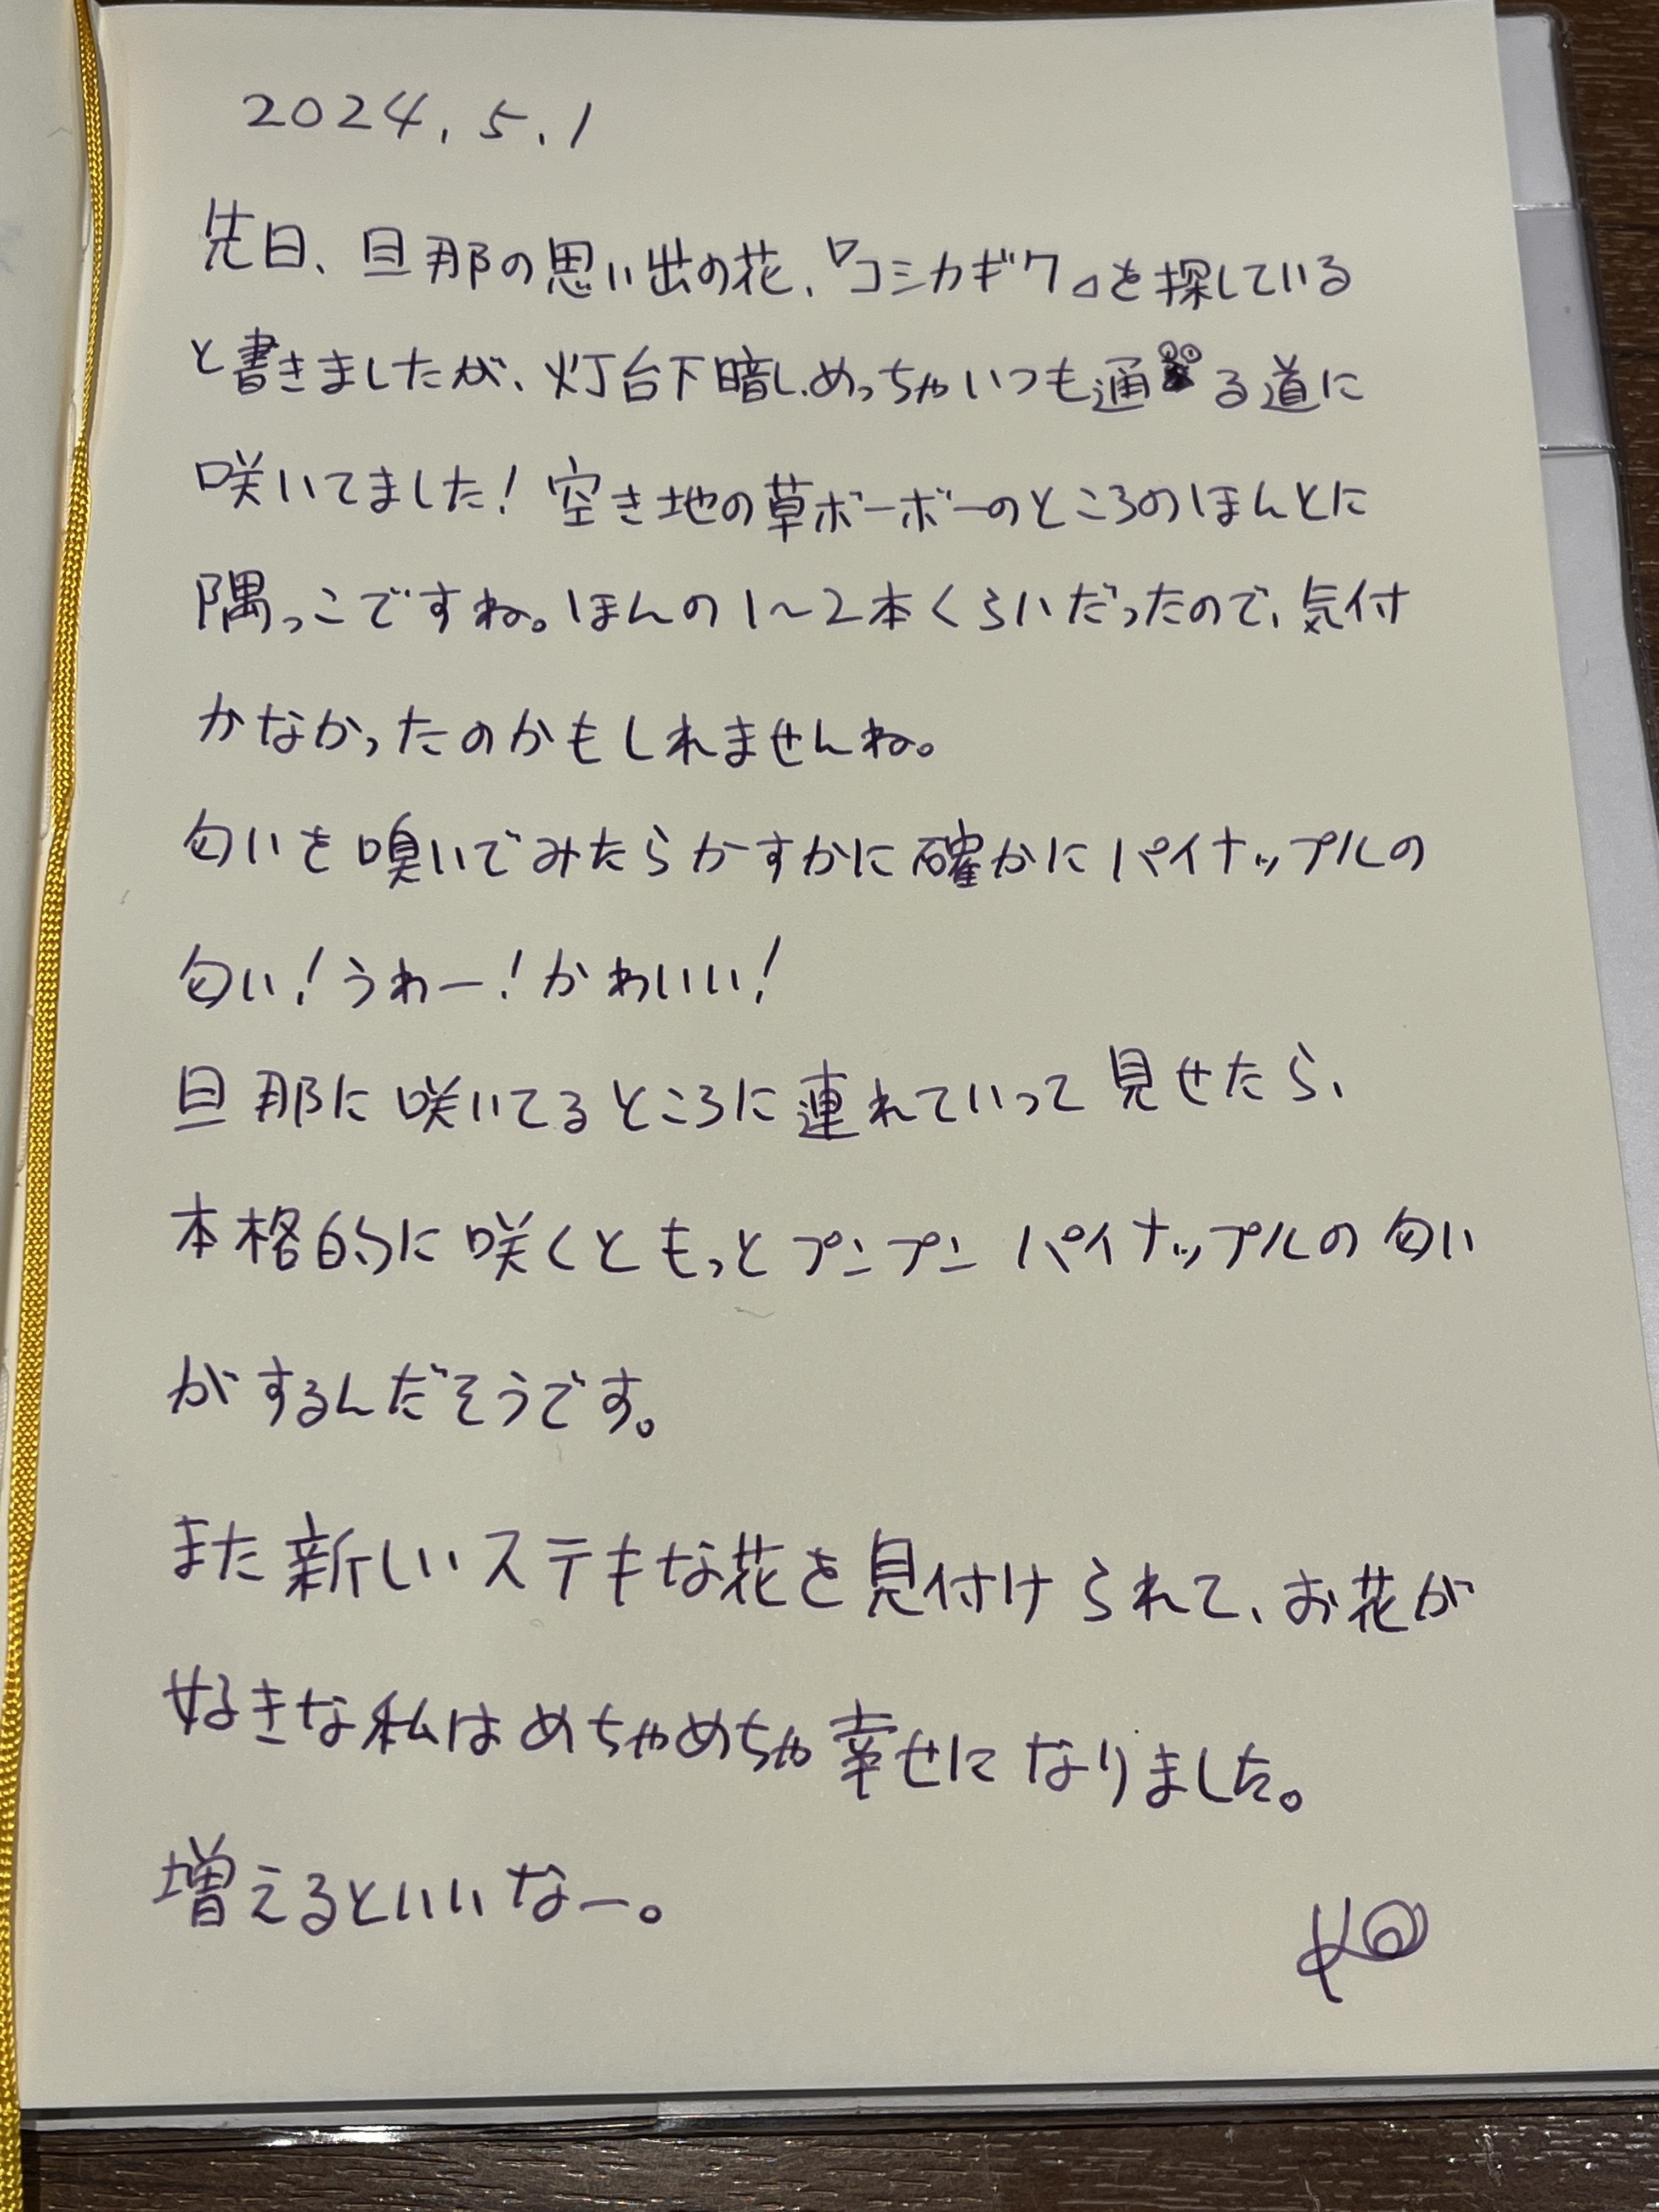 2024.5.1
先日、旦那の思い出の花、『コシカギク』を探している
と書きましたが、灯台下暗し、めっちゃいつも通る道に
咲いてました!空き地の草ボーボーのところのほんとに
隅っこですね。ほんの1〜2本くらいだったので、気付
かなかったのかもしれませんね。
匂いを嗅いでみたらかすかに確かにパイナップルの
匂い!うわー!かわいい!
旦那に咲いてるところに連れていって見せたら、
本格的に咲くともっとプンプンパイナップルの匂い
がするんだそうです。
また新しいステキな花を見付けられて、お花が
好きな私はめちゃめちゃ幸せになりました。
増えるといいなー。